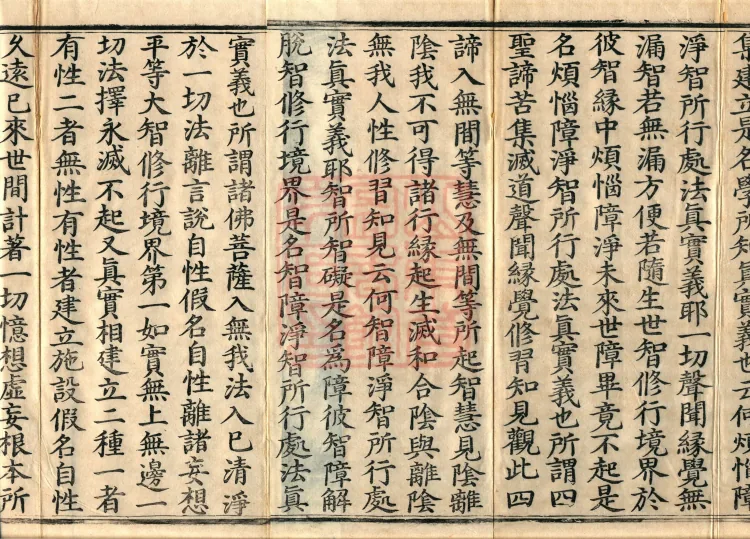 集建立是名學所知真實義也云何煩惱障
淨智所行處法真實義耶一切聲聞緣覺無
漏智若無漏方便若隨生世智修行境界於
彼智緣中煩惱障淨未來世障畢竟不起是
名煩惱障淨智所行處法真實義也所謂四
聖諦苦集滅道聲聞緣覺修習知見觀此四
諦入無間等慧及無間等所起智慧見陰離
陰我不可得諸行緣起生滅和合陰與離陰
無我人性修習知見云何智障淨智所行處
法真實義耶智所智礙是名為障彼智障解
脫智修行境界是名智障淨智所行處法真
實義也所謂諸佛菩薩入無我法入已清淨
於一切法離言說自性假名自性離諸妄想
平等大智修行境界第一如實無上無邊一
切法擇永滅不起又真實相建立二種一者
有性二者無性有性者建立施設假名自性
久遠已來世間計著一切憶想虛妄根本所